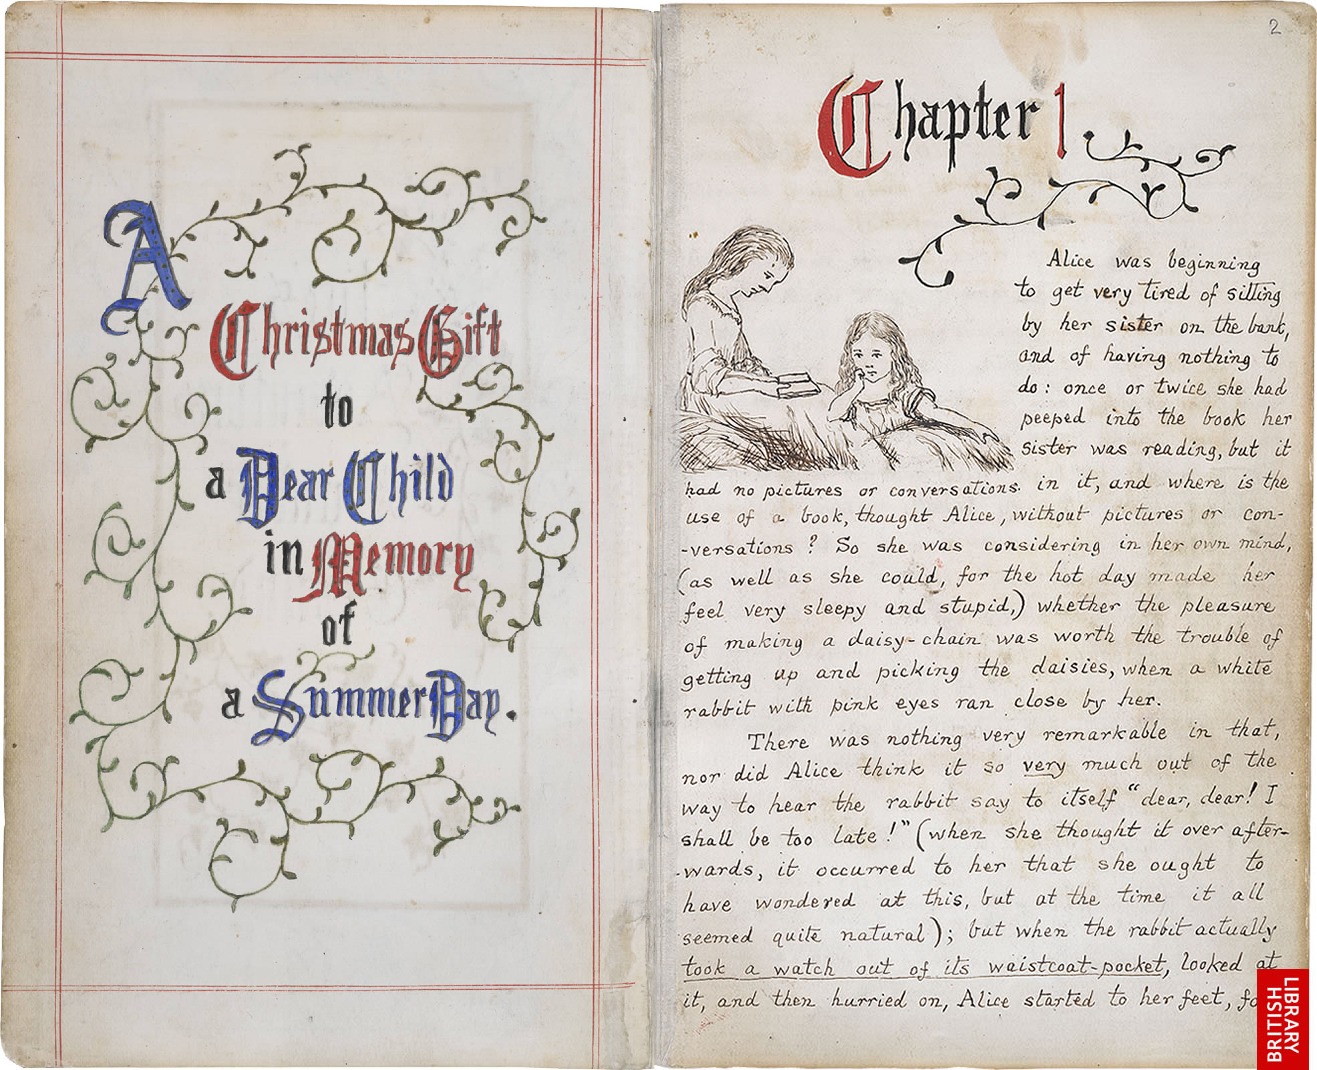 A
Christmas Gift
to
a Dear Child
in Memory
of
a Summer Day.
2
Chapter 1
Alice was beginning
to get very tired of sitting
by her sister on the bank,
and of having nothing to
do: once or twice she had
peeped into the book her
sister was reading, but it
had no pictures or conversations in it, and where is the
use of a book, thought Alice, without pictures or con-
-versations? So she was considering in her own mind,
(as well as she could, for the hot day made her
feel very sleepy and stupid,) whether the pleasure
of making a daisy-chain was worth the trouble of
getting up and picking the daisies, when a white
rabbit with pink eyes ran close by her.
There was nothing very remarkable in that,
nor did Alice think it so very much out of the
way to hear the rabbit say to itself "dear, dear! I
shall be too late!" (when she thought it over after-
-wards, it occurred to her that she ought to
have wondered at this, but at the time it all
seemed quite natural); but when the rabbit actually
took a watch out of its waistcoat-pocket, looked at
it, and then hurried on, Alice started to her feet,
BRITISH
LIBRARY